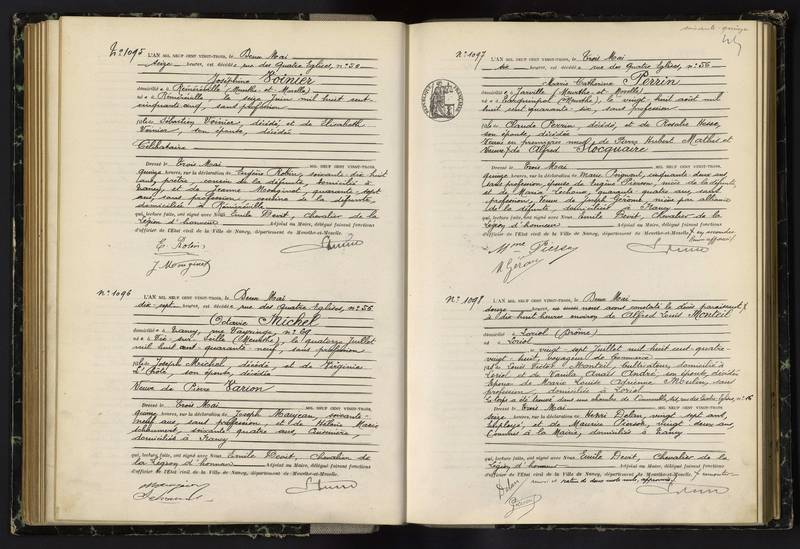 N° 1095 L'AN MIL NEUF CENT VINGT-TROIS, le Deux Mai
Seize heures, est décédée rue des Quatre Eglises, n° 50
Joséphine Voinier
domiciliée à Réméréville (Meurthe-et-Moselle)
née à Réméréville, le seize Juin mil huit cent
cinquante cinq, sans profession
fille de Sébastien Voinier, décédé, et de Elisabeth
Voinier, son épouse, décédée
Célibataire
Dressé le Trois Mai MIL NEUF CENT VINGT-TROIS,
quinze heures, sur la déclaration de Eugène Robin, soixante dix huit
ans, prêtre, cousin de la défunte, domicilié à
Nancy, et de Jeanne Mouginet, quarante sept
ans, sans profession, cousine de la défunte,
domiciliée à Réméréville
qui, lecture faite, ont signé avec Nous Emile Devit, Chevalier de la
Légion d'honneur Adjoint au Maire, délégué faisant fonctions
d'officier de l'Etat civil de la Ville de Nancy, département de Meurthe-et-Moselle.
E. Robin
J. Mouginet
N° 1096 L'AN MIL NEUF CENT VINGT-TROIS, le Deux Mai
dix sept heures, est décédée rue des Quatre Eglises, n° 56
Octavie Michel
domiciliée à Nancy, rue n° 69
née à Vic sur Seille (Meurthe), le quatorze Juillet
mil huit cent quarante neuf, sans profession
fille de Joseph Michel décédé et de Virginie
son épouse, décédée
Veuve de Pierre Varion
Dressé le Trois Mai MIL NEUF CENT VINGT-TROIS,
quinze heures, sur la déclaration de Joseph Mangean, soixante
neuf ans, sans profession, et de Hélène Marie
soixante quatre ans, Cuisinière,
domiciliés à Nancy
qui, lecture faite, ont signé avec Nous Emile Devit, Chevalier de
la Légion d'honneur Adjoint au Maire, délégué faisant fonctions
d'officier de l'Etat civil de la Ville de Nancy, département de Meurthe-et-Moselle.
soixante-quinze
N° 1097 L'AN MIL NEUF CENT VINGT-TROIS, le Trois Mai
dix heures, est décédée rue des Quatre Eglises, n° 56
Marie Catherine Perrin
domiciliée à Jarville (Meurthe-et-Moselle)
née à Tarquimpol (Meurthe), le vingt huit août mil
huit cent quarante-six, sans profession
fille de Claude Perrin, décédé, et de Rosalie Hesse,
son épouse, décédée
Veuve en premières noces de Pierre Hubert Mathis et
Veuve de Alfred Stocquaire
Dressé le Trois Mai MIL NEUF CENT VINGT-TROIS,
quinze heures, sur la déclaration de Marie Poignant, cinquante deux ans
sans profession, épouse de Eugène Pierson, nièce de la défunte,
et de Marie quarante quatre ans, sans
profession, veuve de Joseph Gérone, nièce par alliance
de la défunte, domiciliées à Nancy
qui, lecture faite, ont signé avec Nous Emile Devit, Chevalier de la
Légion d'honneur Adjoint au Maire, délégué faisant fonctions
d'officier de l'Etat civil de la Ville de Nancy, département de Meurthe-et-Moselle.
Mme Pierson
N° 1098 L'AN MIL NEUF CENT VINGT-TROIS, le Deux Mai
douze heures, nous avons constaté le décès paraissant
à dix huit heures environ de Alfred Louis Monteil
domicilié à Loriol (Drôme)
né à Loriol
le vingt sept Juillet mil huit cent quatre
vingt huit, Voyageur de Commerce
fils de Louis Victor Monteil, Cultivateur, domicilié à
Loriol et de Anaïs André, son épouse, décédée
Epoux de Marie Louise Adrienne Moulin, sans
profession, domiciliée à Loriol
Le corps a été trouvé dans une chambre de rue des Quatre Eglises, n° 16
Dressé le Trois Mai MIL NEUF CENT VINGT-TROIS,
seize heures, sur la déclaration de Henri Dolin, vingt sept ans,
Employé, et de Maurice Pierson, vingt deux ans,
Commis à la Mairie, domiciliés à Nancy
qui, lecture faite, ont signé avec Nous Emile Devit, Chevalier de la
Légion d'honneur Adjoint au Maire, délégué faisant fonctions
d'officier de l'Etat civil de la Ville de Nancy, département de Meurthe-et-Moselle.